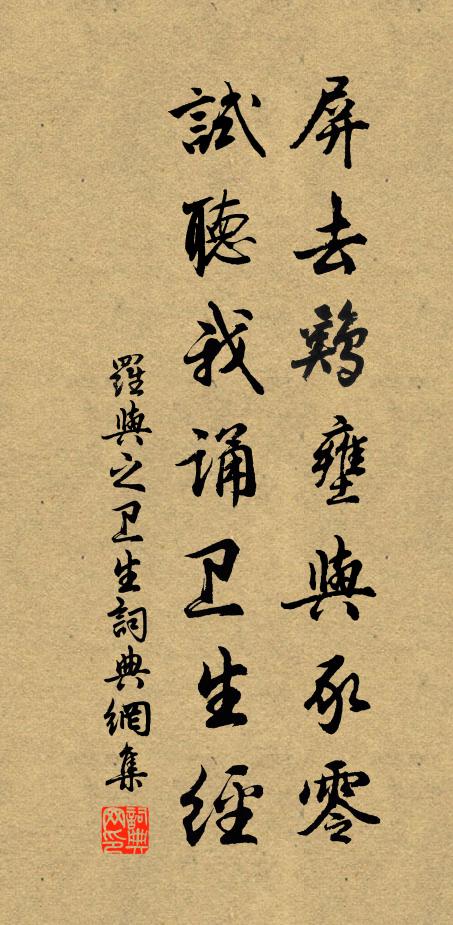 屏去鷄壅與豕零
試聽我誦卫生經
羅與之卫生詞典網集
詞典网印